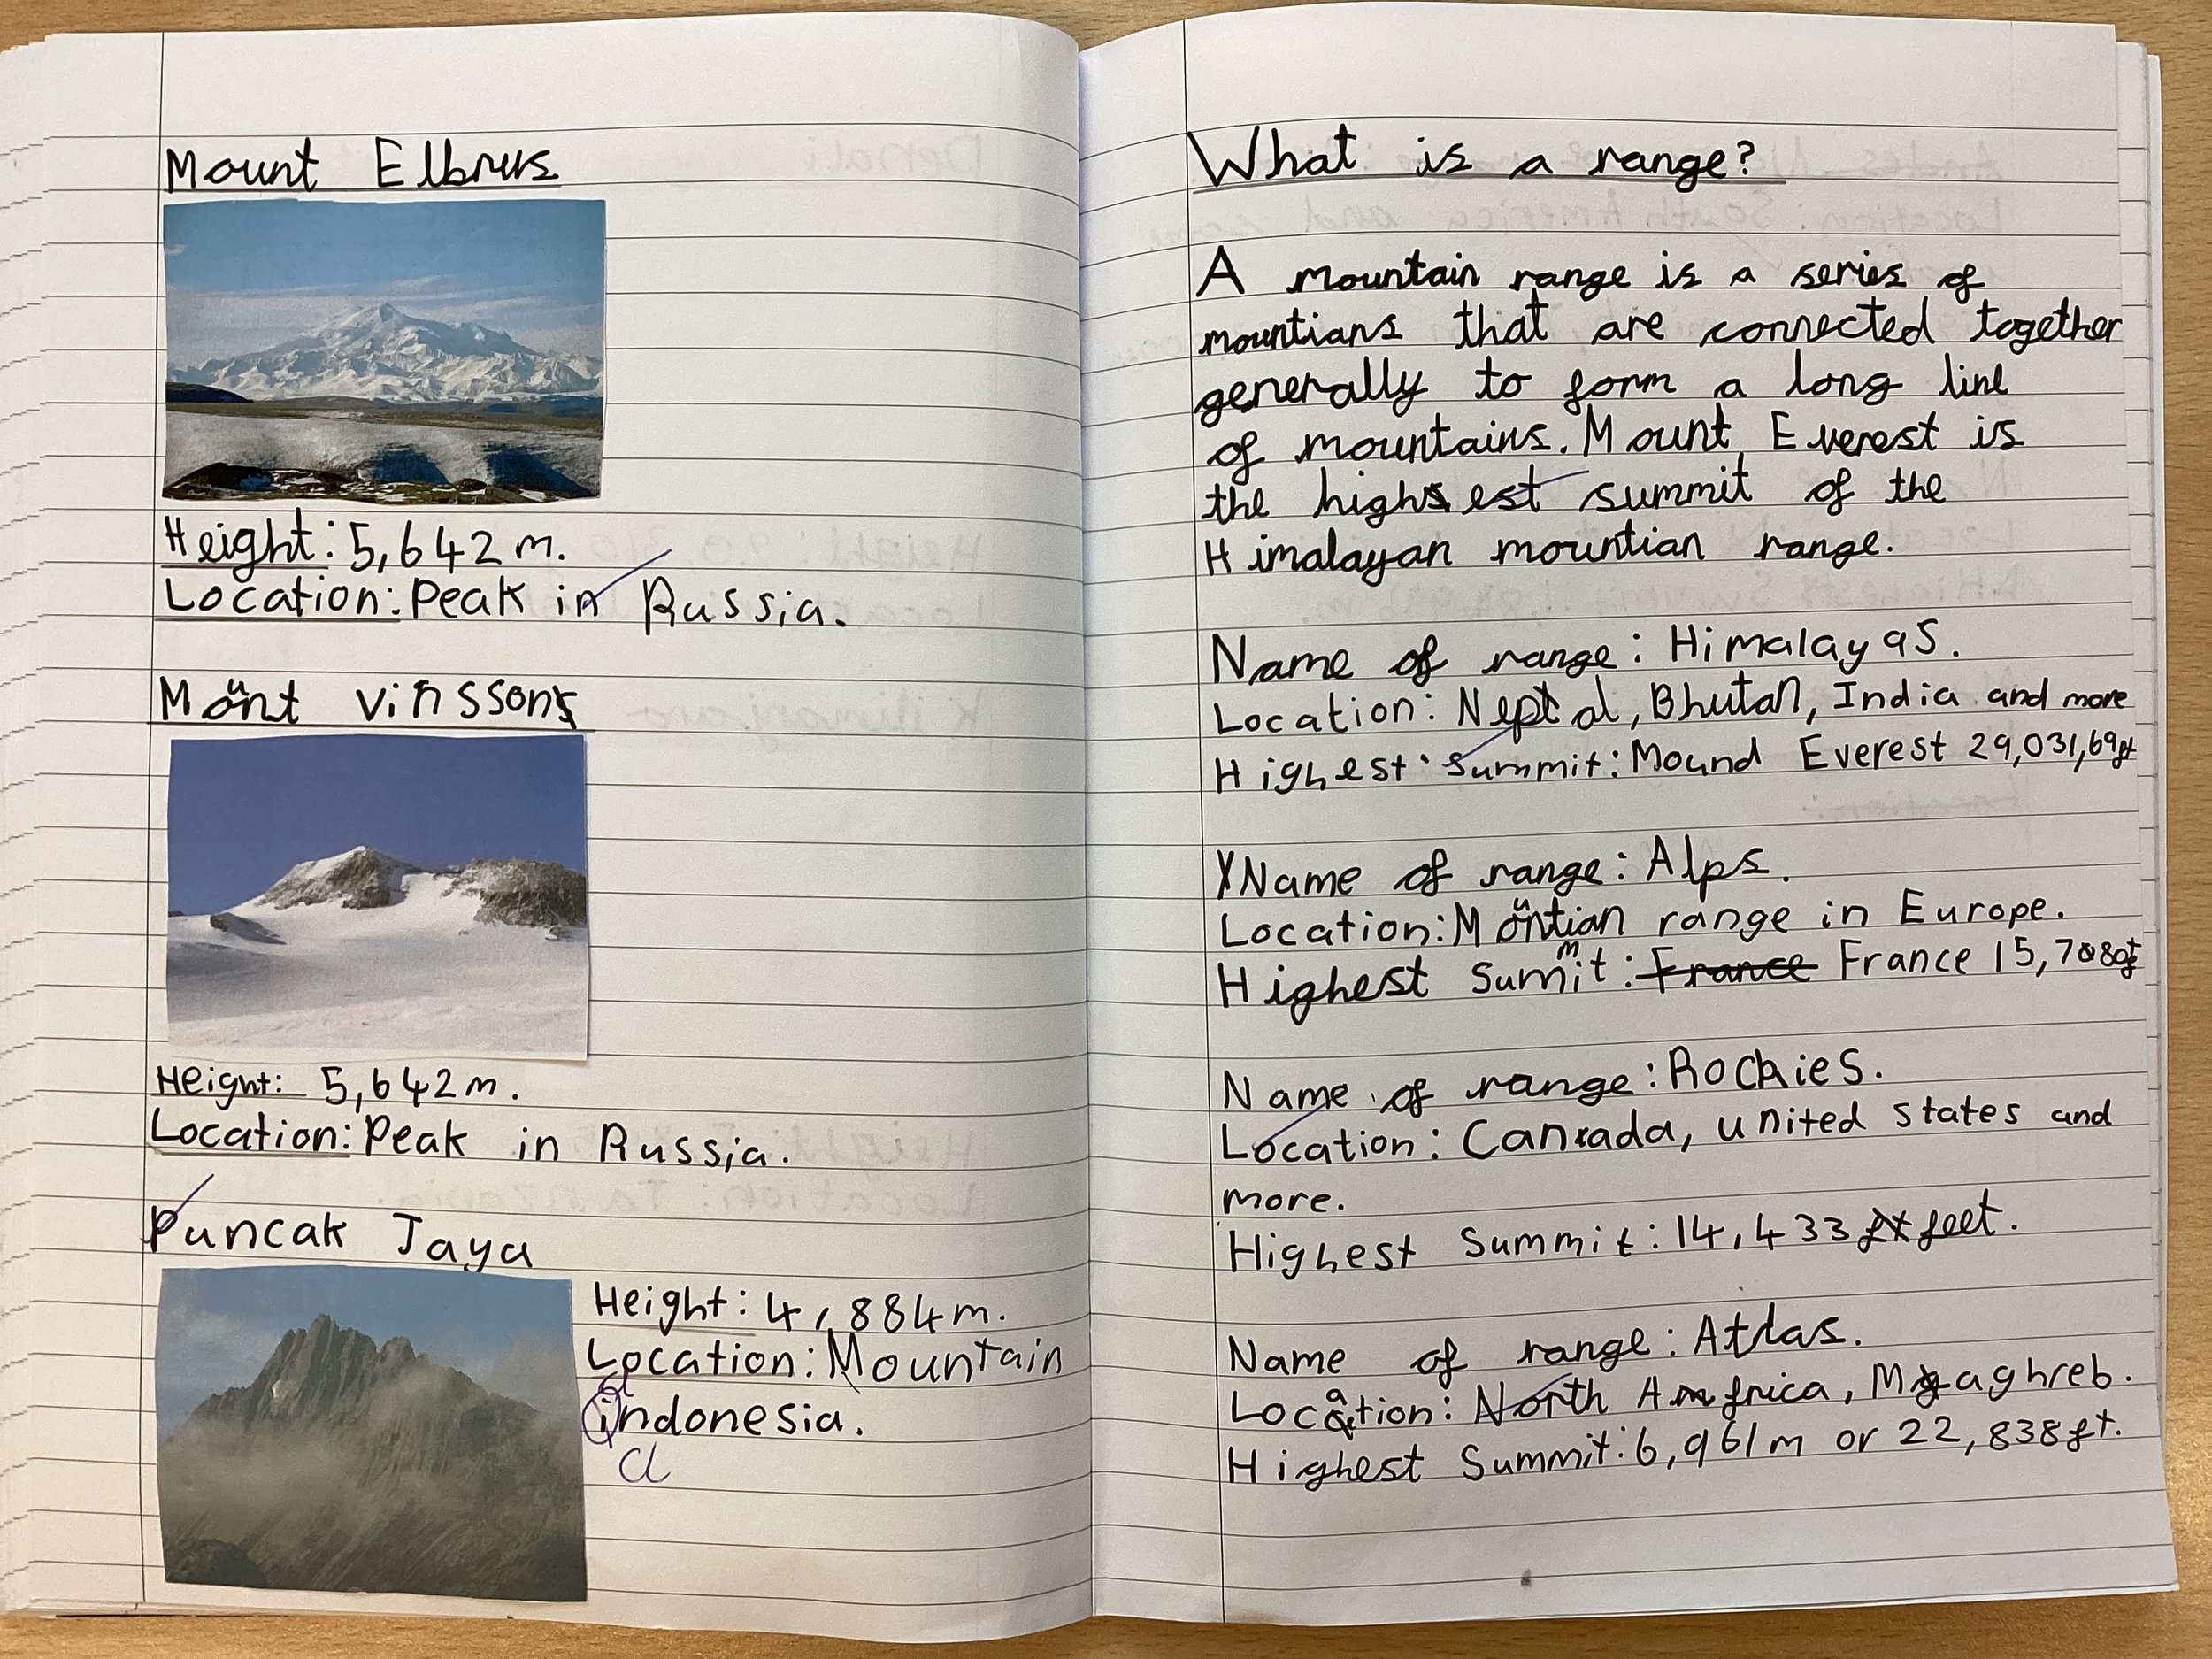 Mount Elbrus
Height: 5,642m.
Location: Peak in Russia.
Mount vinsson
Height: 5,642m.
Location: Peak in Russia.
Puncak Jaya
Height: 4,884m.
Location: Mountain
indonesia.
cl
What is a range?
A mountain range is a series of
mountians that are connected together
generally to form a long line
of mountains. Mount Everest is
the highest summit of the
Himalayan mountian range.
Name of range: Himalayas.
Location: Nepal, Bhutan, India and more
Highest summit: Mound Everest 29,031,69ft
Name of range: Alps.
Location: Mountian range in Europe.
Highest Summit: France France 15,780ft
Name of range: Rockies.
Location: Canada, united states and
more.
Highest Summit: 14,433 feet.
Name of range: Atlas.
Location: North Africa, Maghreb.
Highest Summit: 6,961m or 22,838ft.